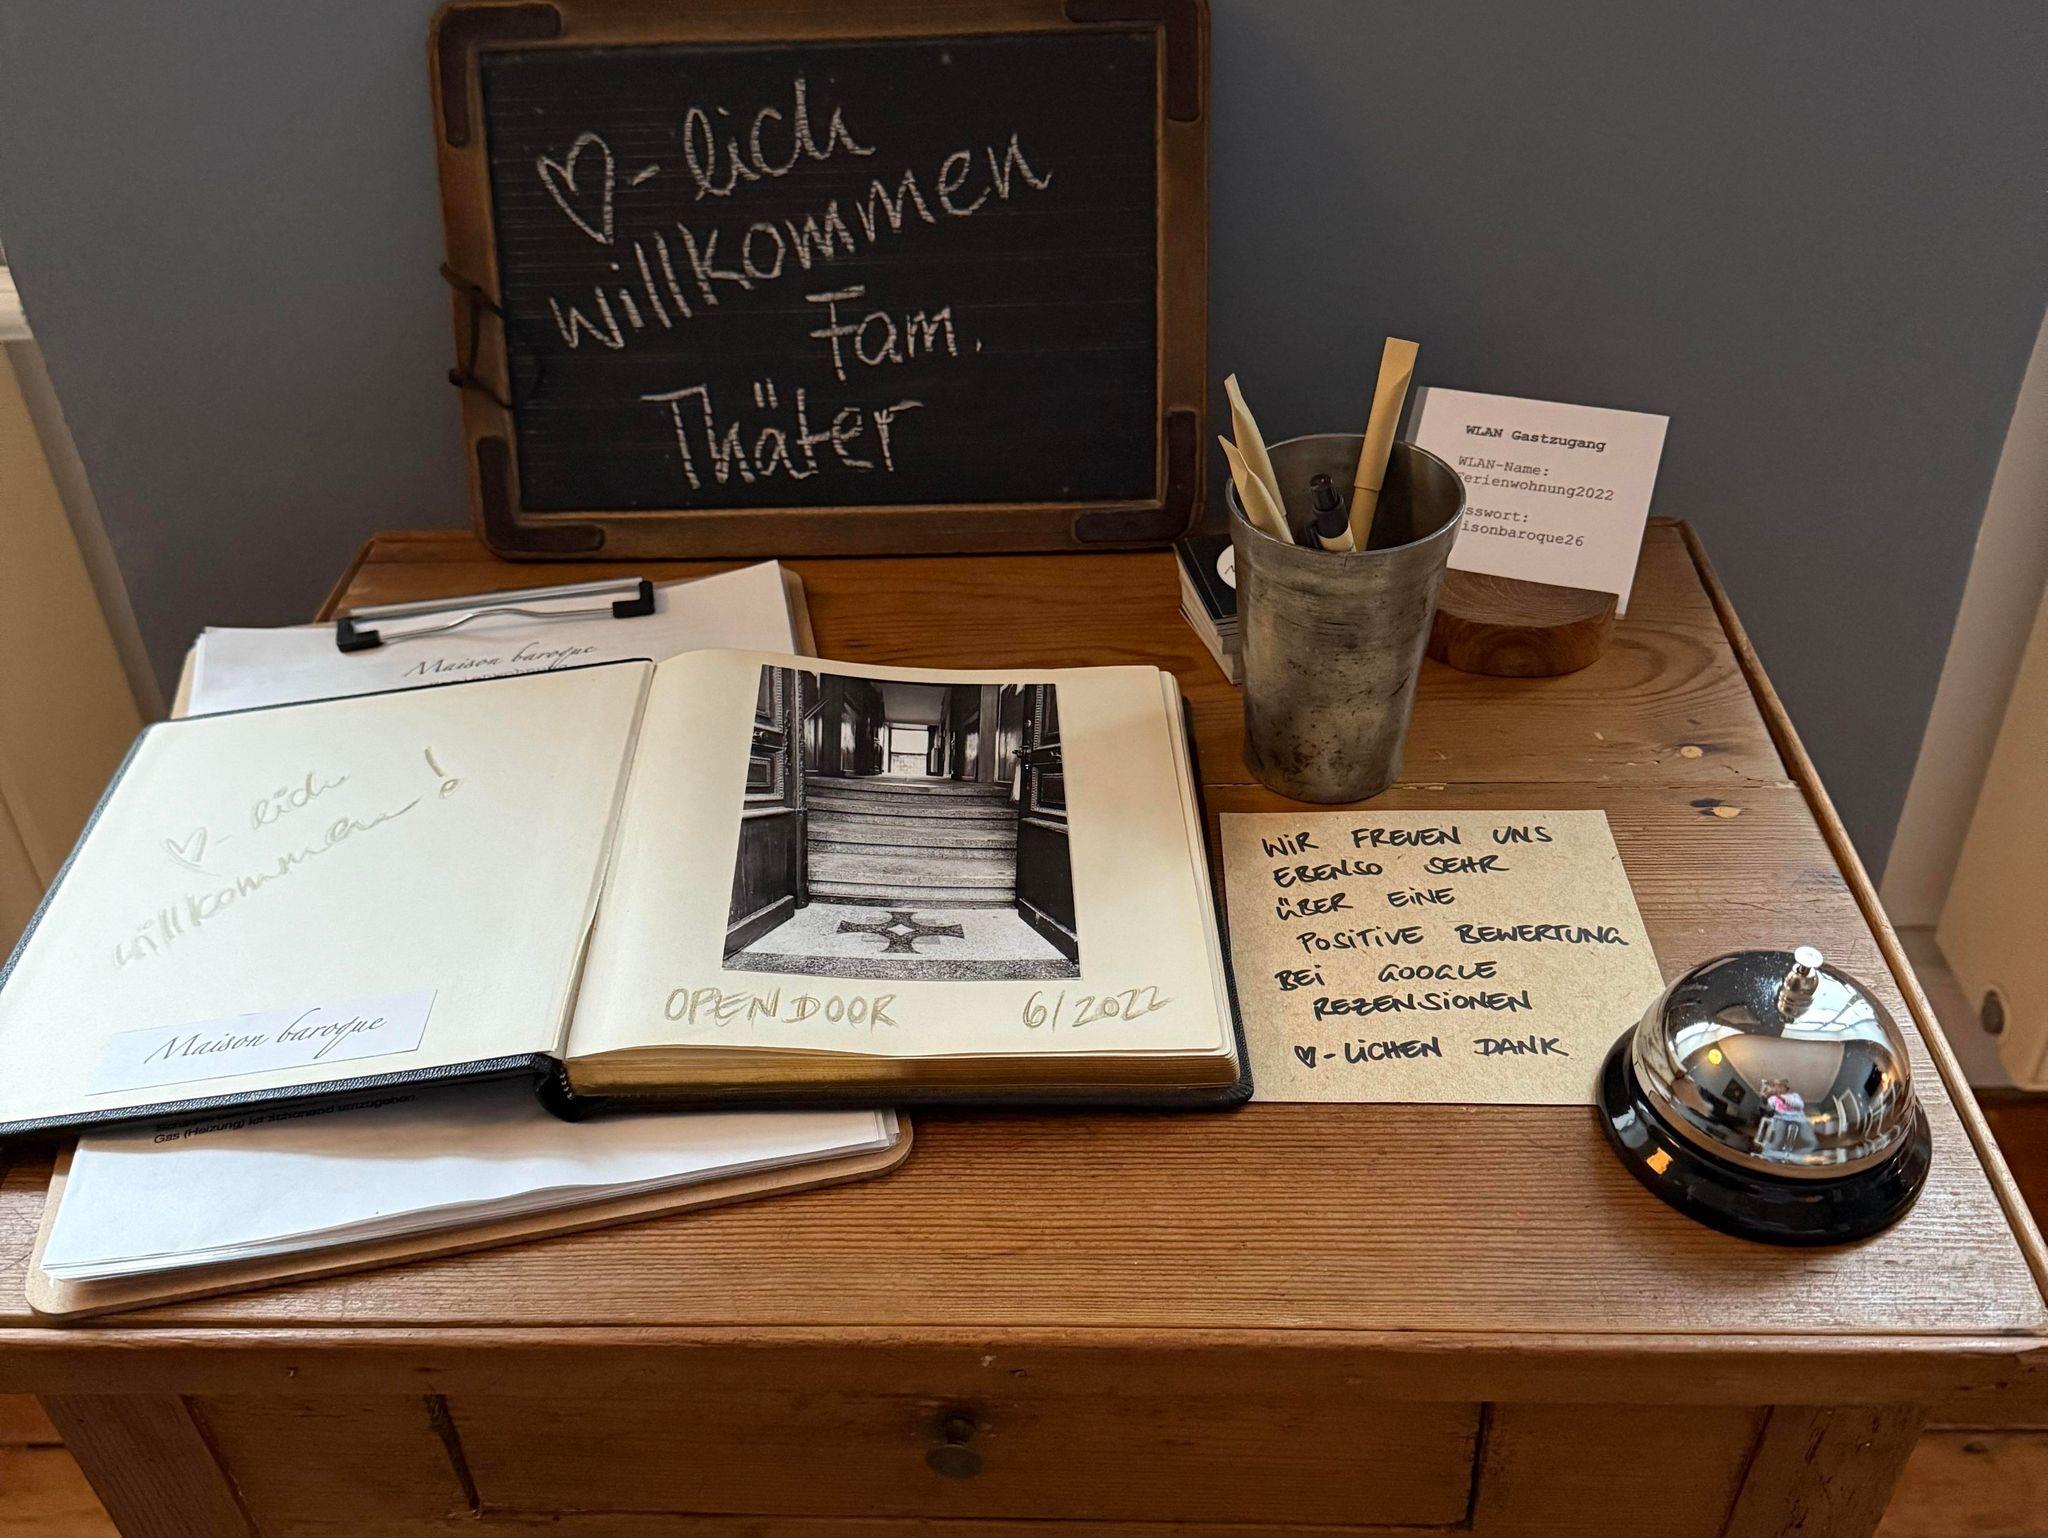 ♡-lich
willkommen
Fam.
Thäter
WLAN Gastzugang
WLAN-Name:
Ferienwohnung2022
sswort:
isonbaroque26
Maison baroque
♡-lich
willkommen!
Maison baroque
OPEN DOOR 6/2022
WIR FREUEN UNS
EBENSO SEHR
ÜBER EINE
POSITIVE BEWERTUNG
BEI GOOGLE
REZENSIONEN
♥-LICHEN DANK
Gas (Heizung) ist schonend umzugehen.